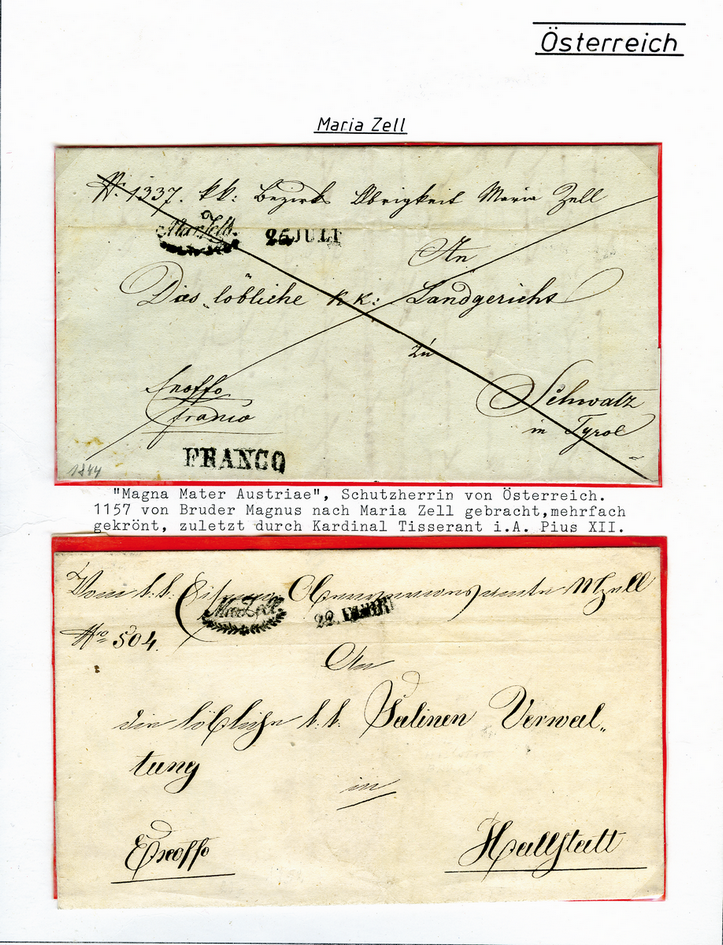 Österreich
Maria Zell
No. 1337. kk: Bezirks Obrigkeit Maria Zell
MarZell. 25 JULI
An
Das löbliche k k: Landgericht
zu
Exoffo
franco
Schwatz
in Tyrol
FRANCO
1844
"Magna Mater Austriae", Schutzherrin von Österreich.
1157 von Bruder Magnus nach Maria Zell gebracht,mehrfach
gekrönt, zuletzt durch Kardinal Tisserant i.A. Pius XII.
Vom k.k. MZell
MarZell 22. FEBR
Nro 504.
An
die löbliche k.k. Salinen Verwal„
tung
in
Exoffo
Hallstatt